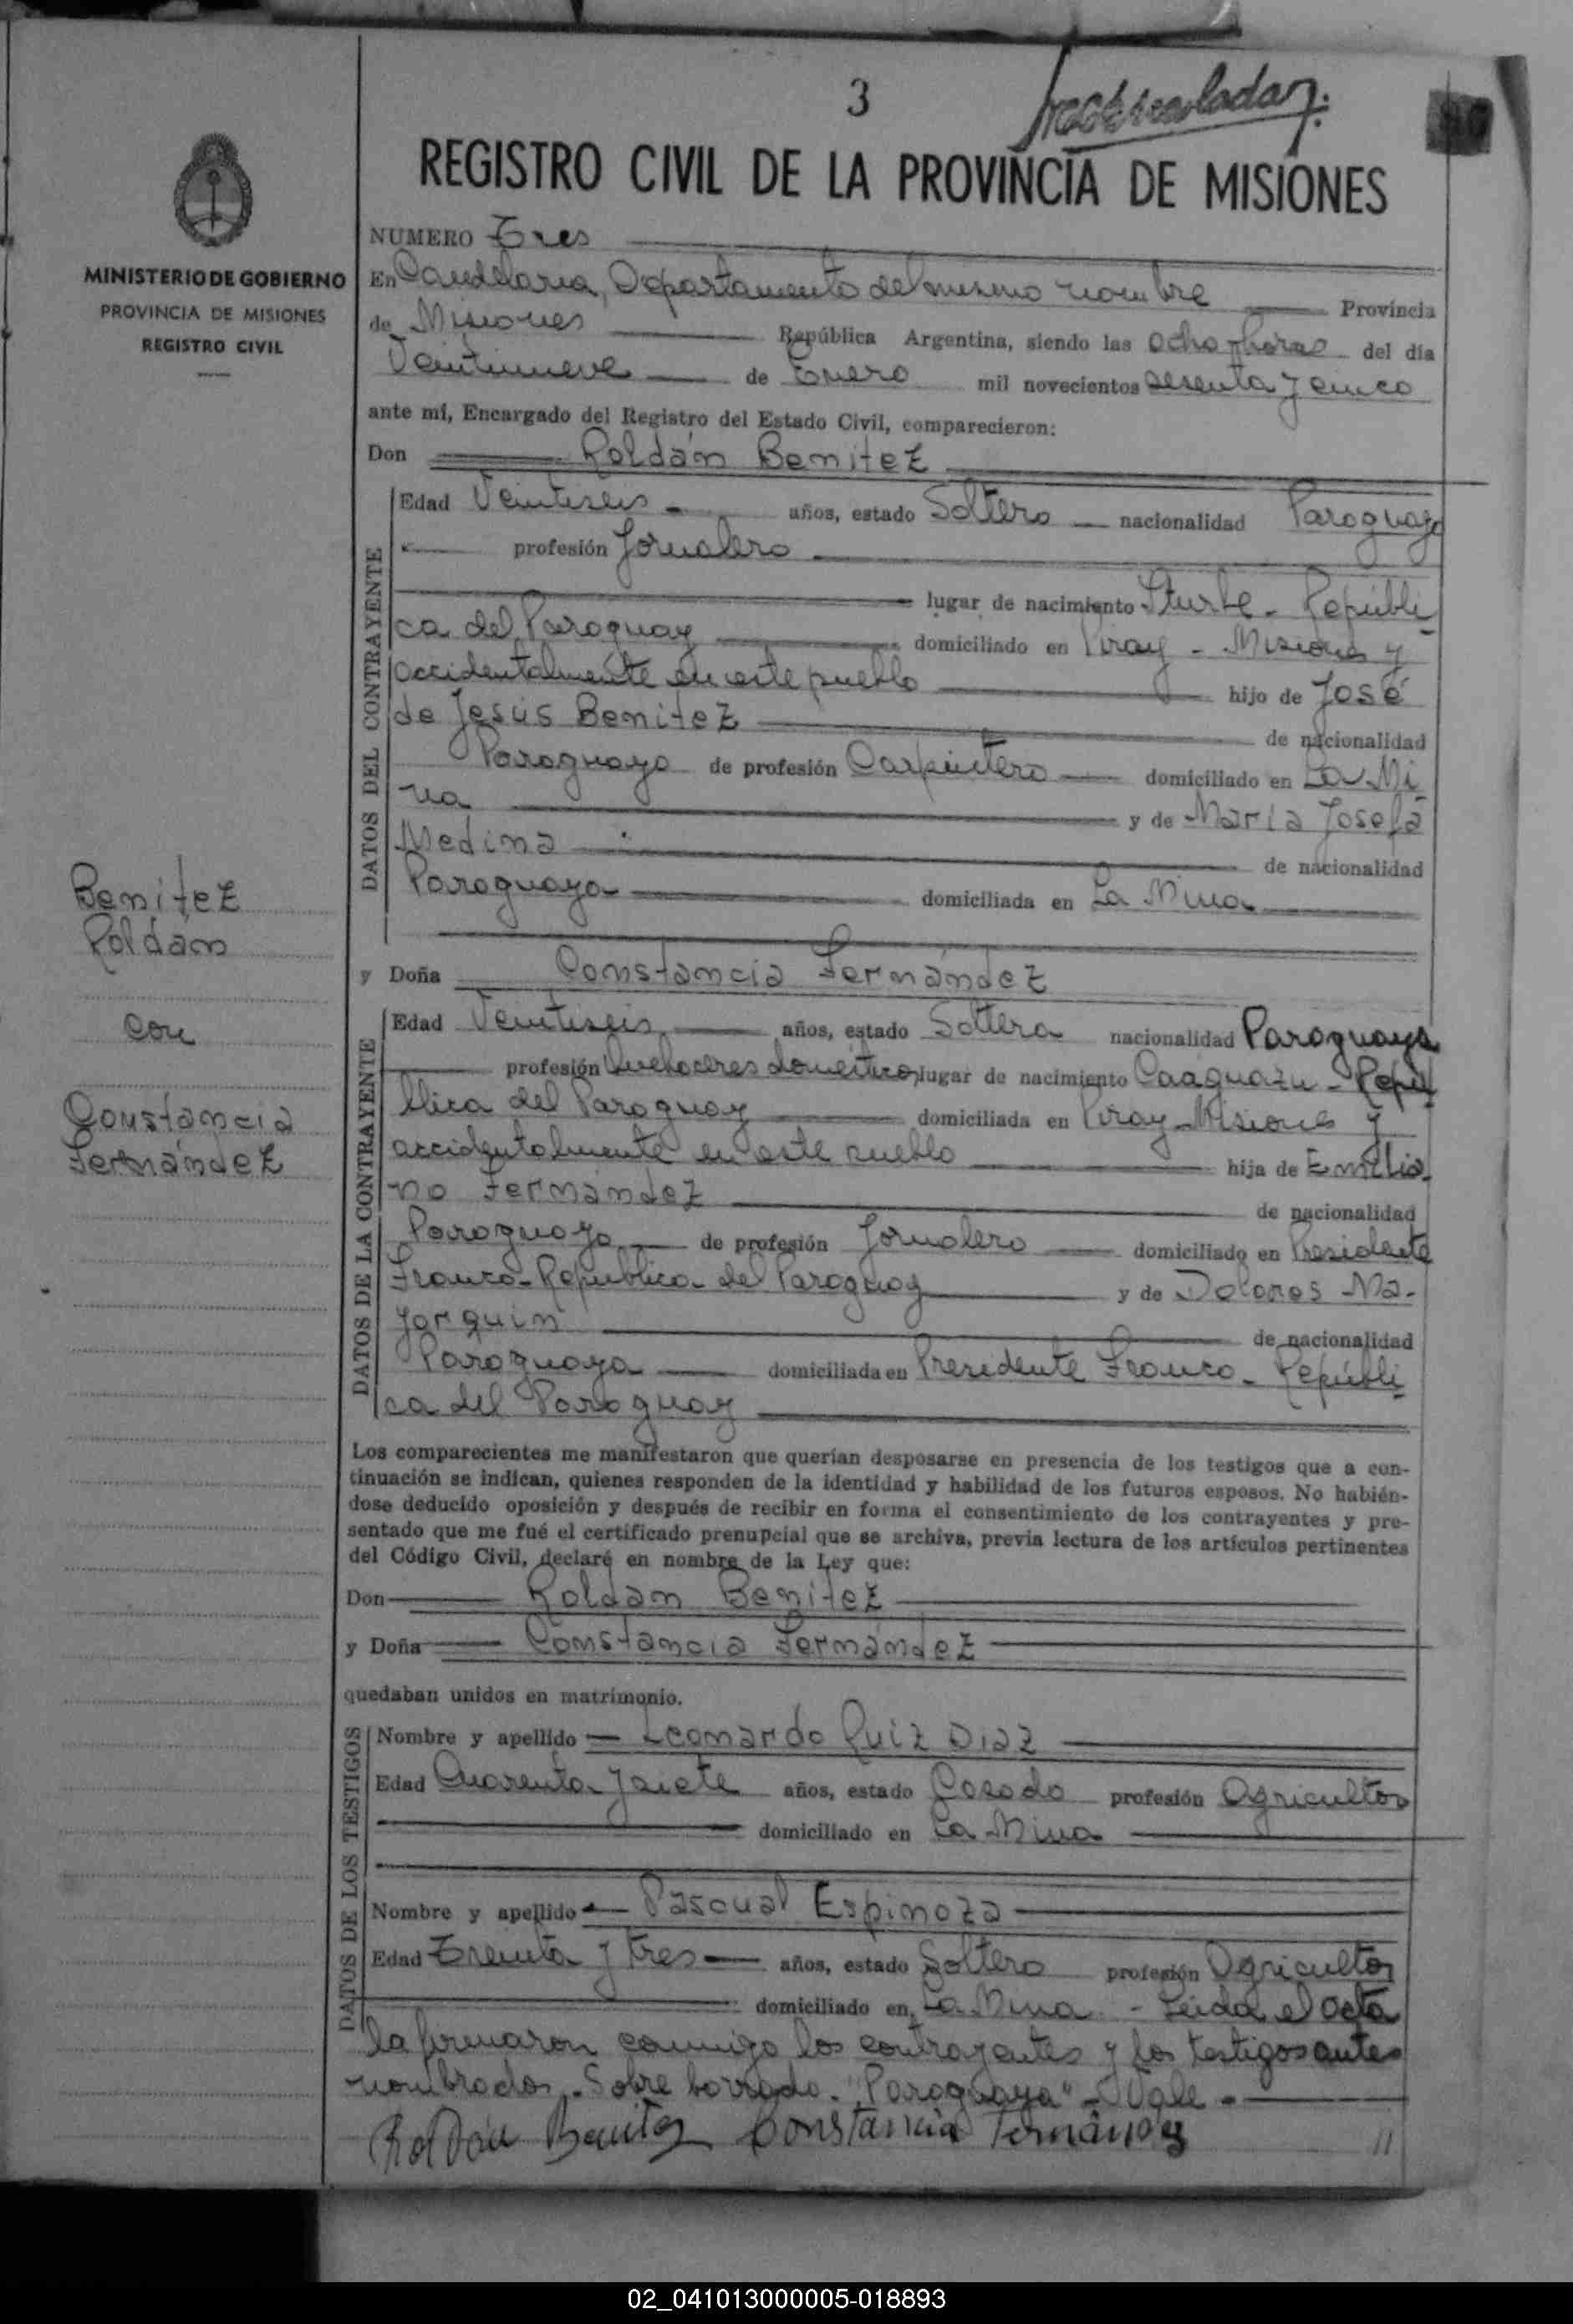 3
REGISTRO CIVIL DE LA PROVINCIA DE MISIONES
MINISTERIO DE GOBIERNO
PROVINCIA DE MISIONES
REGISTRO CIVIL
NUMERO Tres
En Candelaria, Departamento del mismo nombre Provincia
de Misiones República Argentina, siendo las ocho horas del día
Veintinueve de Enero mil novecientos sesenta y cinco
ante mí, Encargado del Registro del Estado Civil, comparecieron:
Don Roldán Benitez
DATOS DEL CONTRAYENTE
Edad Veintiseis años, estado Soltero nacionalidad Paraguayo
profesión Jornalero
lugar de nacimiento Iturbe - Repúbli
ca del Paraguay domiciliado en Piray - Misiones y
accidentalmente en este pueblo hijo de José
de Jesús Benitez de nacionalidad
Paraguayo de profesión Carpintero domiciliado en La Mi
na y de María Josefa
Medina de nacionalidad
Paraguaya domiciliada en La Mina
y Doña Constancia Fernández
Benitez
Roldán
con
Constancia
Fernández
DATOS DE LA CONTRAYENTE
Edad Veintiseis años, estado Soltera nacionalidad Paraguaya
profesión Quehaceres domésticos lugar de nacimiento Caaguazu - Repú
blica del Paraguay domiciliada en Piray - Misiones y
accidentalmente en este pueblo hija de Emilia-
no Fernández de nacionalidad
Paraguayo de profesión Jornalero domiciliado en Presidente
Franco - Republica del Paraguay y de Dolores Ma-
yorquin de nacionalidad
Paraguaya domiciliada en Presidente Franco - Repúbli
ca del Paraguay
Los comparecientes me manifestaron que querían desposarse en presencia de los testigos que a con-
tinuación se indican, quienes responden de la identidad y habilidad de los futuros esposos. No habién-
dose deducido oposición y después de recibir en forma el consentimiento de los contrayentes y pre-
sentado que me fué el certificado prenupcial que se archiva, previa lectura de los artículos pertinentes
del Código Civil, declaré en nombre de la Ley que:
Don Roldan Benitez
y Doña Constancia Fernández
quedaban unidos en matrimonio.
DATOS DE LOS TESTIGOS
Nombre y apellido Leonardo Ruiz Diaz
Edad Cuarenta y siete años, estado Casado profesión Agricultor
domiciliado en La Mina
Nombre y apellido Pascual Espinoza
Edad Treinta y tres años, estado Soltero profesión Agricultor
domiciliado en La Mina - Leida el acta
la firmaron conmigo los contrayentes y los testigos antes
nombrados. Sobre borrado. "Paraguaya" - Vale -
Roldán Benitez Constancia Fernández //
02_041013000005-018893